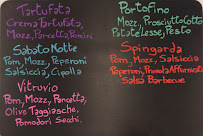 Tartufata
Crema Tartufata,
Mozz, Porcetta, Porcini
Sabato Notte
Pom, Mozz, Peperoni
Salsiccia, Cipolla
Vitruvio
Pom, Mozz, Pancetta,
Olive Taggiasche,
Pomodori Secchi.
Portofino
Mozz, Prosciutto Cotto
Potatelesse, Pesto
Spingarda
Pom, Mozz, Salsiccia
Peperoni, Provola Affumicata
Salsa Barbecue